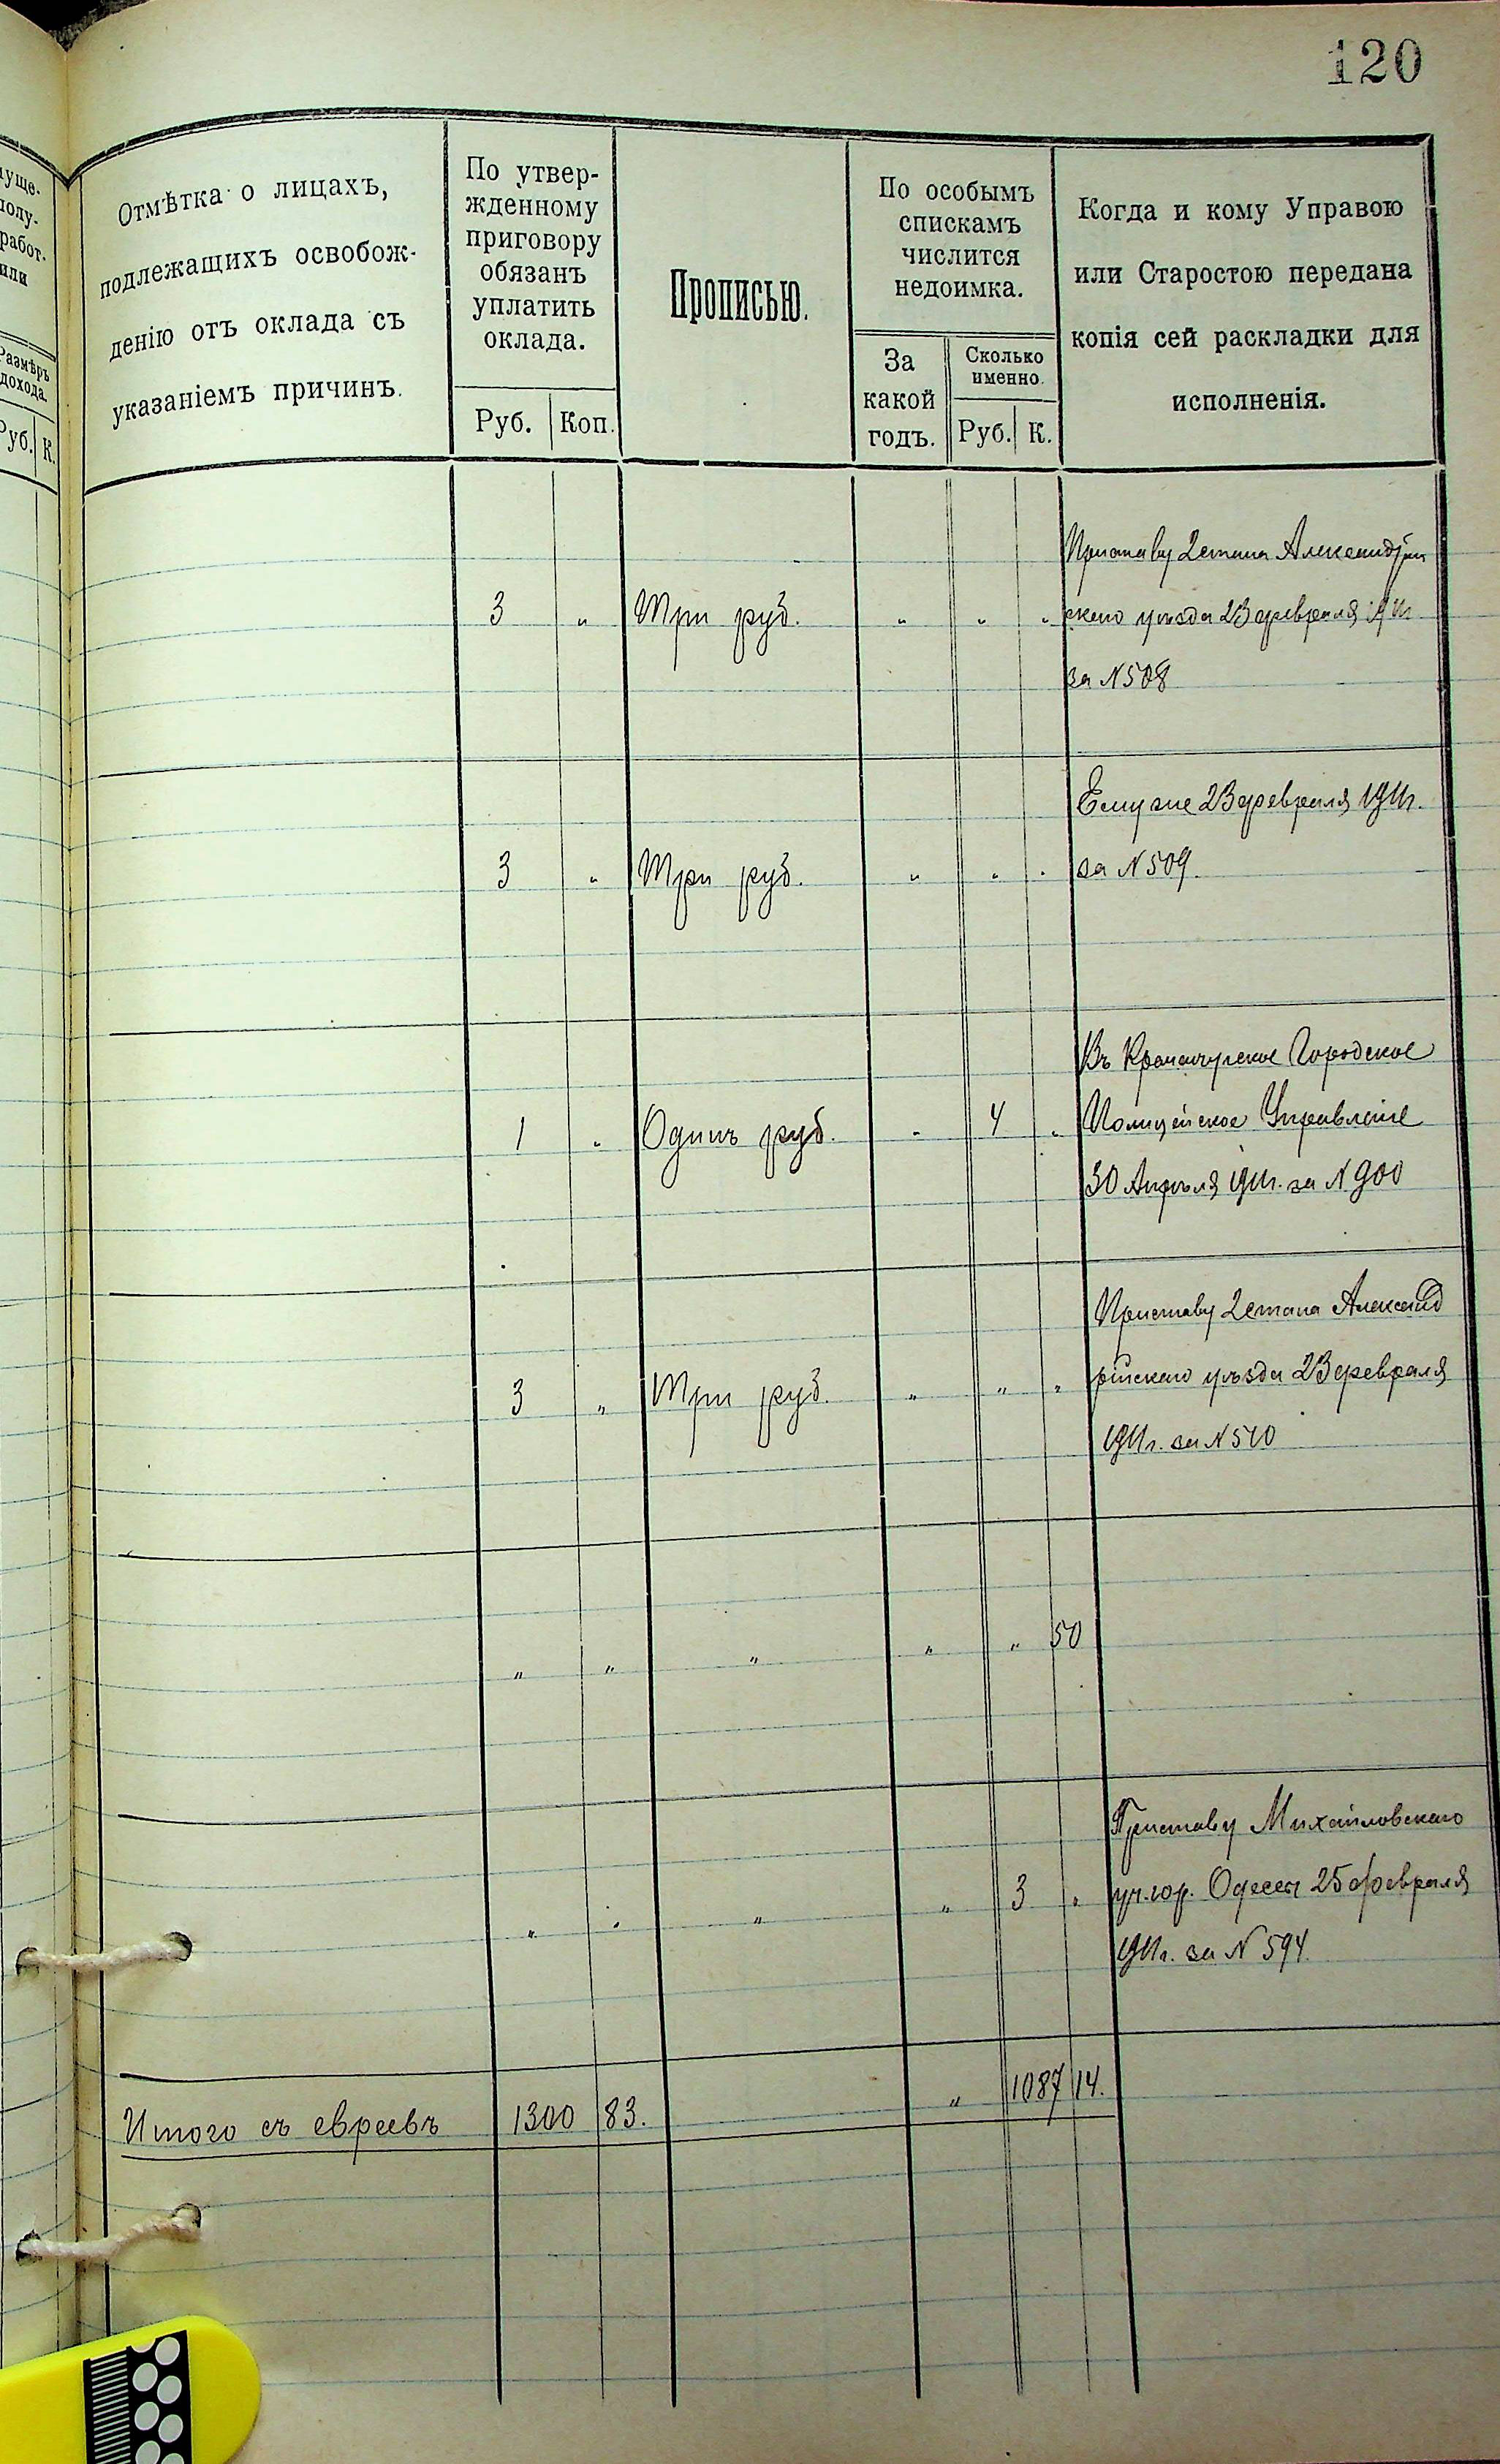 120
уще-
полу-
работ.
или
Размѣръ
дохода.
Руб. К.
Отмѣтка о лицахъ,
подлежащихъ освобож-
денію отъ оклада съ
указаніемъ причинъ.
По утвер-
жденному
приговору
обязанъ
уплатить
оклада.
Руб. Коп.
Прописью.
По особымъ
спискамъ
числится
недоимка.
За
какой
годъ.
Сколько
именно.
Руб. К.
Когда и кому Управою
или Старостою передана
копія сей раскладки для
исполненія.
Приставу 2 стана Александрій
3 „ Три руб. „ „ „ скаго уѣзда 23 февраля 1911
за N 508
Ему же 23 февраля 1911г.
3 „ Три руб. „ „ „ за N 509.
Въ Кременчугское Городское
1 „ Одинъ руб. „ 4 „ Полицейское Управленіе
30 Апрѣля 1911г. за N 900
Приставу 2 стана Александ
3 „ Три руб. „ „ „ рійскаго уѣзда 23 февраля
1911г. за N 510
„ „ „ „ „ 50
Приставу Михайловскаго
„ „ „ „ 3 „ уч. гор. Одессы 25 февраля
1911г. за N 594.
Итого съ евреевъ 1300 83. „ 1087 14.